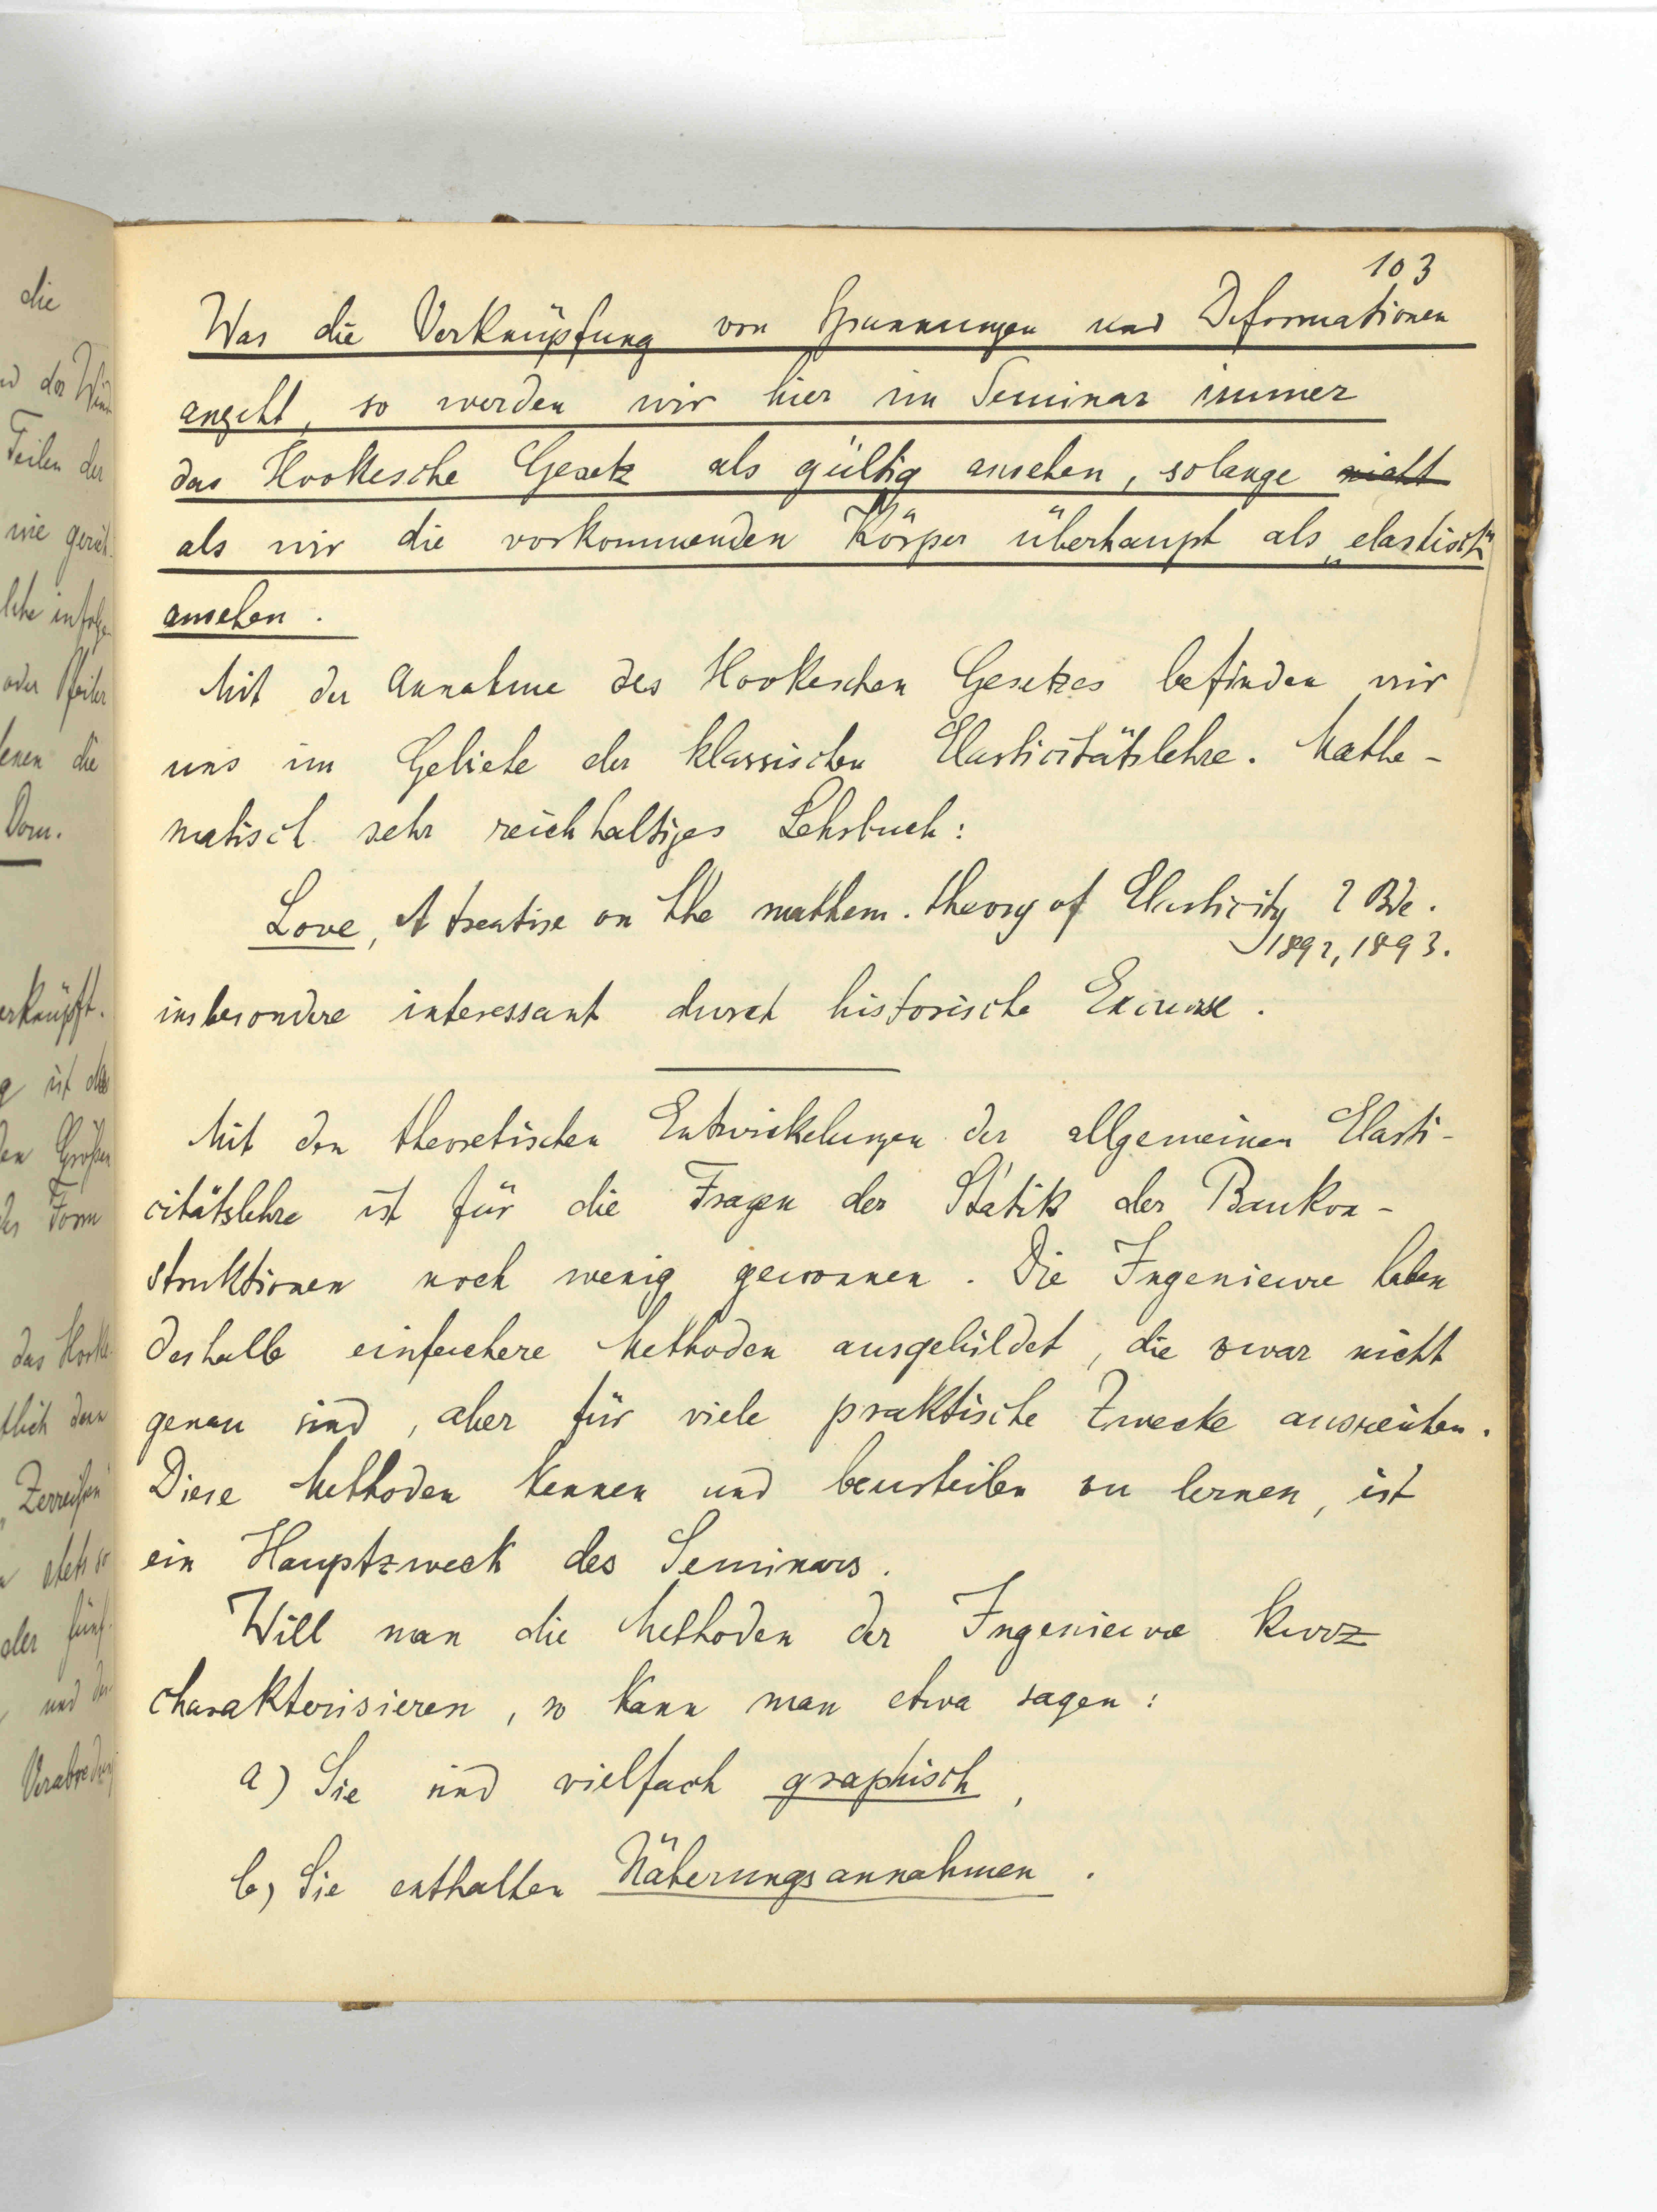 die
nd der Wind
Teilen der
wie gerich-
lche infolge
oder Pfeiler
denen die
Dom.
erknüpft.
g ist das
den Größen
der Form
das Hooke-
tlich dem
„Zerreißen"
stets so
der fünf-
und der
Verabredung
103
Was die Verknüpfung von Spannungen und Deformationen
angeht, so werden wir hier im Seminar immer
das Hookesche Gesetz als gültig ansehen, solange nicht
als wir die vorkommenden Körper überhaupt als „elastisch"
ansehen.
Mit der Annahme des Hookeschen Gesetzes befinden wir
uns im Gebiete der klassischen Elasticitätslehre. Mathe-
matisch sehr reichhaltiges Lehrbuch:
Love, A treatise on the mathem. theory of Elasticity 2 Bde.
1892, 1893.
insbesondere interessant durch historische Excurse.
Mit den theoretischen Entwickelungen der allgemeinen Elasti-
citätslehre ist für die Fragen der Statik der Baukon-
struktionen noch wenig gewonnen. Die Ingenieure haben
deshalb einfachere Methoden ausgebildet, die zwar nicht
genau sind, aber für viele praktische Zwecke ausreichen.
Diese Methoden kennen und beurteilen zu lernen, ist
ein Hauptzweck des Seminars.
Will man die Methoden der Ingenieure kurz
charakterisieren, so kann man etwa sagen:
a) Sie sind vielfach graphisch,
b) Sie enthalten Näherungsannahmen.